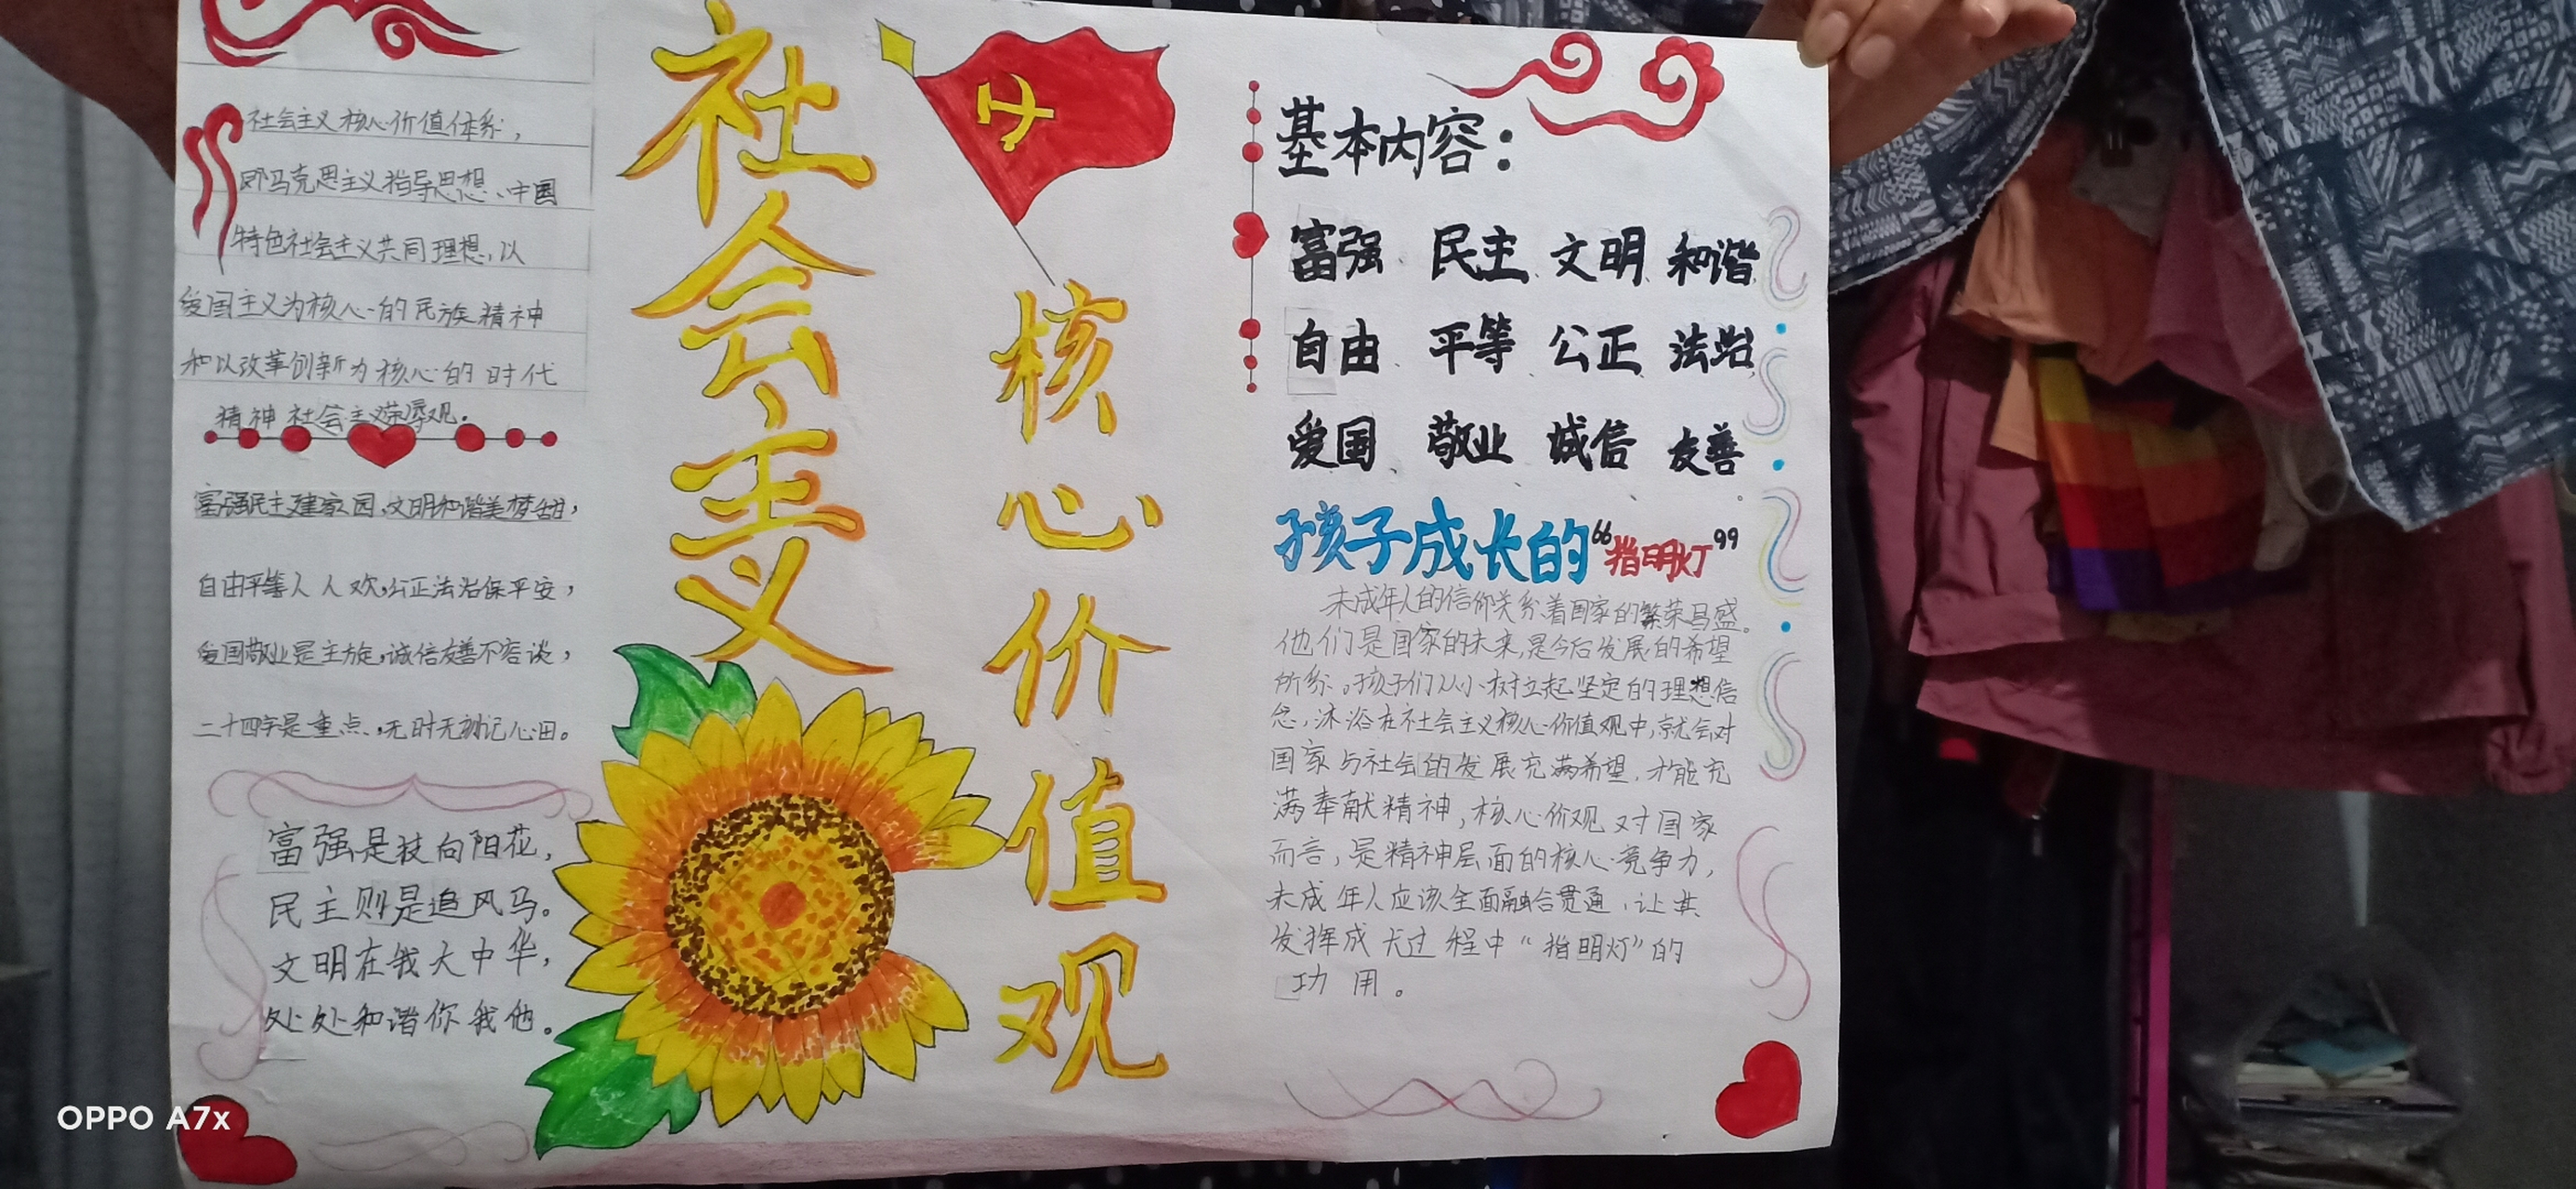 社会主义核心价值体系，
即马克思主义指导思想、中国
特色社会主义共同理想，以
爱国主义为核心的民族精神
和以改革创新为核心的时代
精神社会主义荣辱观。
富强民主建家园，文明和谐美梦甜，
自由平等人人欢，公正法治保平安，
爱国敬业是主旋，诚信友善不容谈，
二十四字是重点，无时无刻记心田。
富强是枝向阳花，
民主则是追风马。
文明在我大中华，
处处和谐你我他。
社会主义
核心价值观
基本内容：
富强、民主、文明、和谐、
自由、平等、公正、法治、
爱国、敬业、诚信、友善。
孩子成长的“指明灯”
未成年人的信仰关系着国家的繁荣昌盛。
他们是国家的未来，是今后发展的希望
所系。孩子们从小树立起坚定的理想信
念，沐浴在社会主义核心价值观中，就会对
国家与社会的发展充满希望，才能充
满奉献精神，核心价观对国家
而言，是精神层面的核心竞争力，
未成年人应该全面融合贯通，让其
发挥成长过程中“指明灯”的
功用。
OPPO A7x